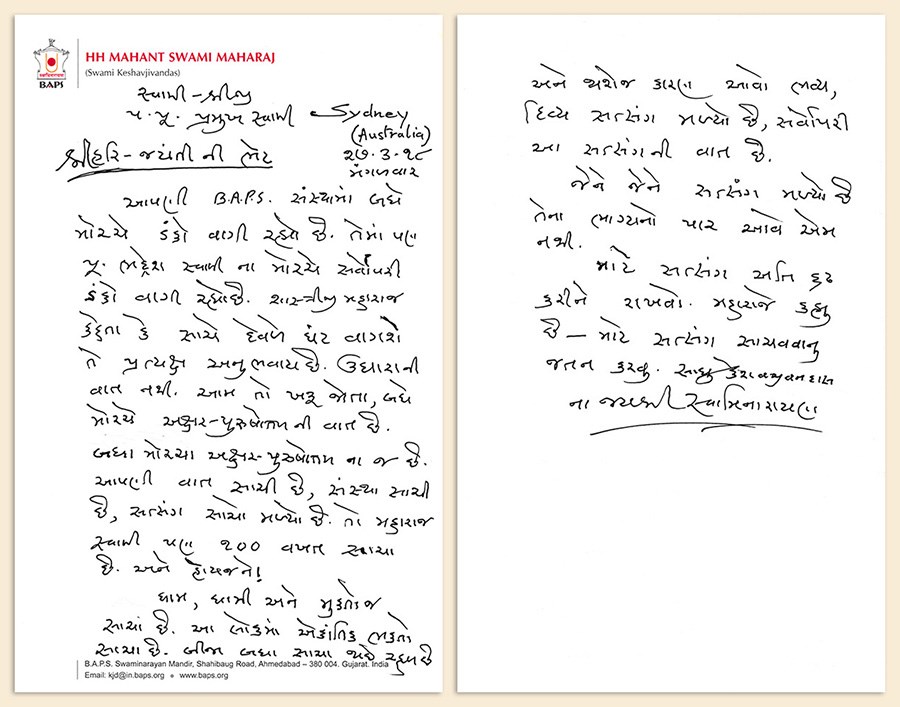 HH MAHANT SWAMI MAHARAJ
(Swami Keshavjivandas)
BAPS
સ્વામી-શ્રીજી
પ.પૂ. પ્રમુખ સ્વામી
Sydney
(Australia)
૨૭.૩.૧૮
મંગળવાર
શ્રીહરિ-જયંતી ની ભેટ
આપણી B.A.P.S. સંસ્થામાં બધે
મોરચે ડંકો વાગી રહ્યો છે. તેમાં પણ
પૂ. ભદ્રેશ સ્વામી ના મોરચે સર્વોપરી
ડંકો વાગી રહ્યોછે. શાસ્ત્રીજી મહારાજ
કહેતા કે સાચે દેવળે ઘંટ વાગશે
તે પ્રત્યક્ષ અનુભવાય છે. ઉધારાની
વાત નથી. આમ તો ખરૂ જોતા, બધે
મોરચે અક્ષર-પુરુષોત્તમ ની વાત છે.
બધા મોરચા અક્ષર-પુરુષોત્તમ ના જ છે.
આપણી વાત સાચી છે, સંસ્થા સાચી
છે, સત્સંગ સાચો મળ્યો છે. તો મહારાજ
સ્વામી પણ ૨૦૦ વખત સાચા
છે. અને હોયજને!
ધામ, ધામી અને મુક્તોજ
સાચાં છે. આ લોકમાં એકાંતિક ભક્તો
સાચા છે. બીજા બધા સાચા થઈ રહ્યા છે
B.A.P.S. Swaminarayan Mandir, Shahibaug Road, Ahmedabad – 380 004. Gujarat. India
Email: kjd@in.baps.org • www.baps.org
અને એરોજ કારણ આવો ભવ્ય,
દિવ્ય સત્સંગ મળ્યો છે, સર્વોપરી
આ સત્સંગની વાત છે.
જેને જેને સત્સંગ મળ્યો છે
તેના ભાગ્યનો પાર આવે એમ
નથી.
માટે સત્સંગ અતિ દૃઢ
કરીને રાખવો. મહારાજે કહ્યુ
છે – માટે સત્સંગ સાચવવાનુ
જતન કરવુ. સાધુ કેશવજીવનદાસ
ના જયશ્રી સ્વામિનારાયણ